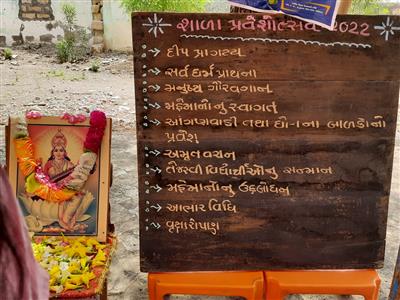 શાળા પ્રવેશોત્સવ 2022
→ દીપ પ્રાગટય
→ સર્વ ધર્મ પ્રાર્થના
→ મનુષ્ય ગૌરવગાન
→ મહેમાનોનું સ્વાગત
→ આંગણવાડી તથા ધો-1ના બાળકોનો
પ્રવેશ
→ અમૃત વચન
→ તેજસ્વી વિદ્યાર્થીઓનું સન્માન
→ મહેમાનોનું ઉદ્દબોધન
→ આભાર વિધિ
→ વૃક્ષારોપણ